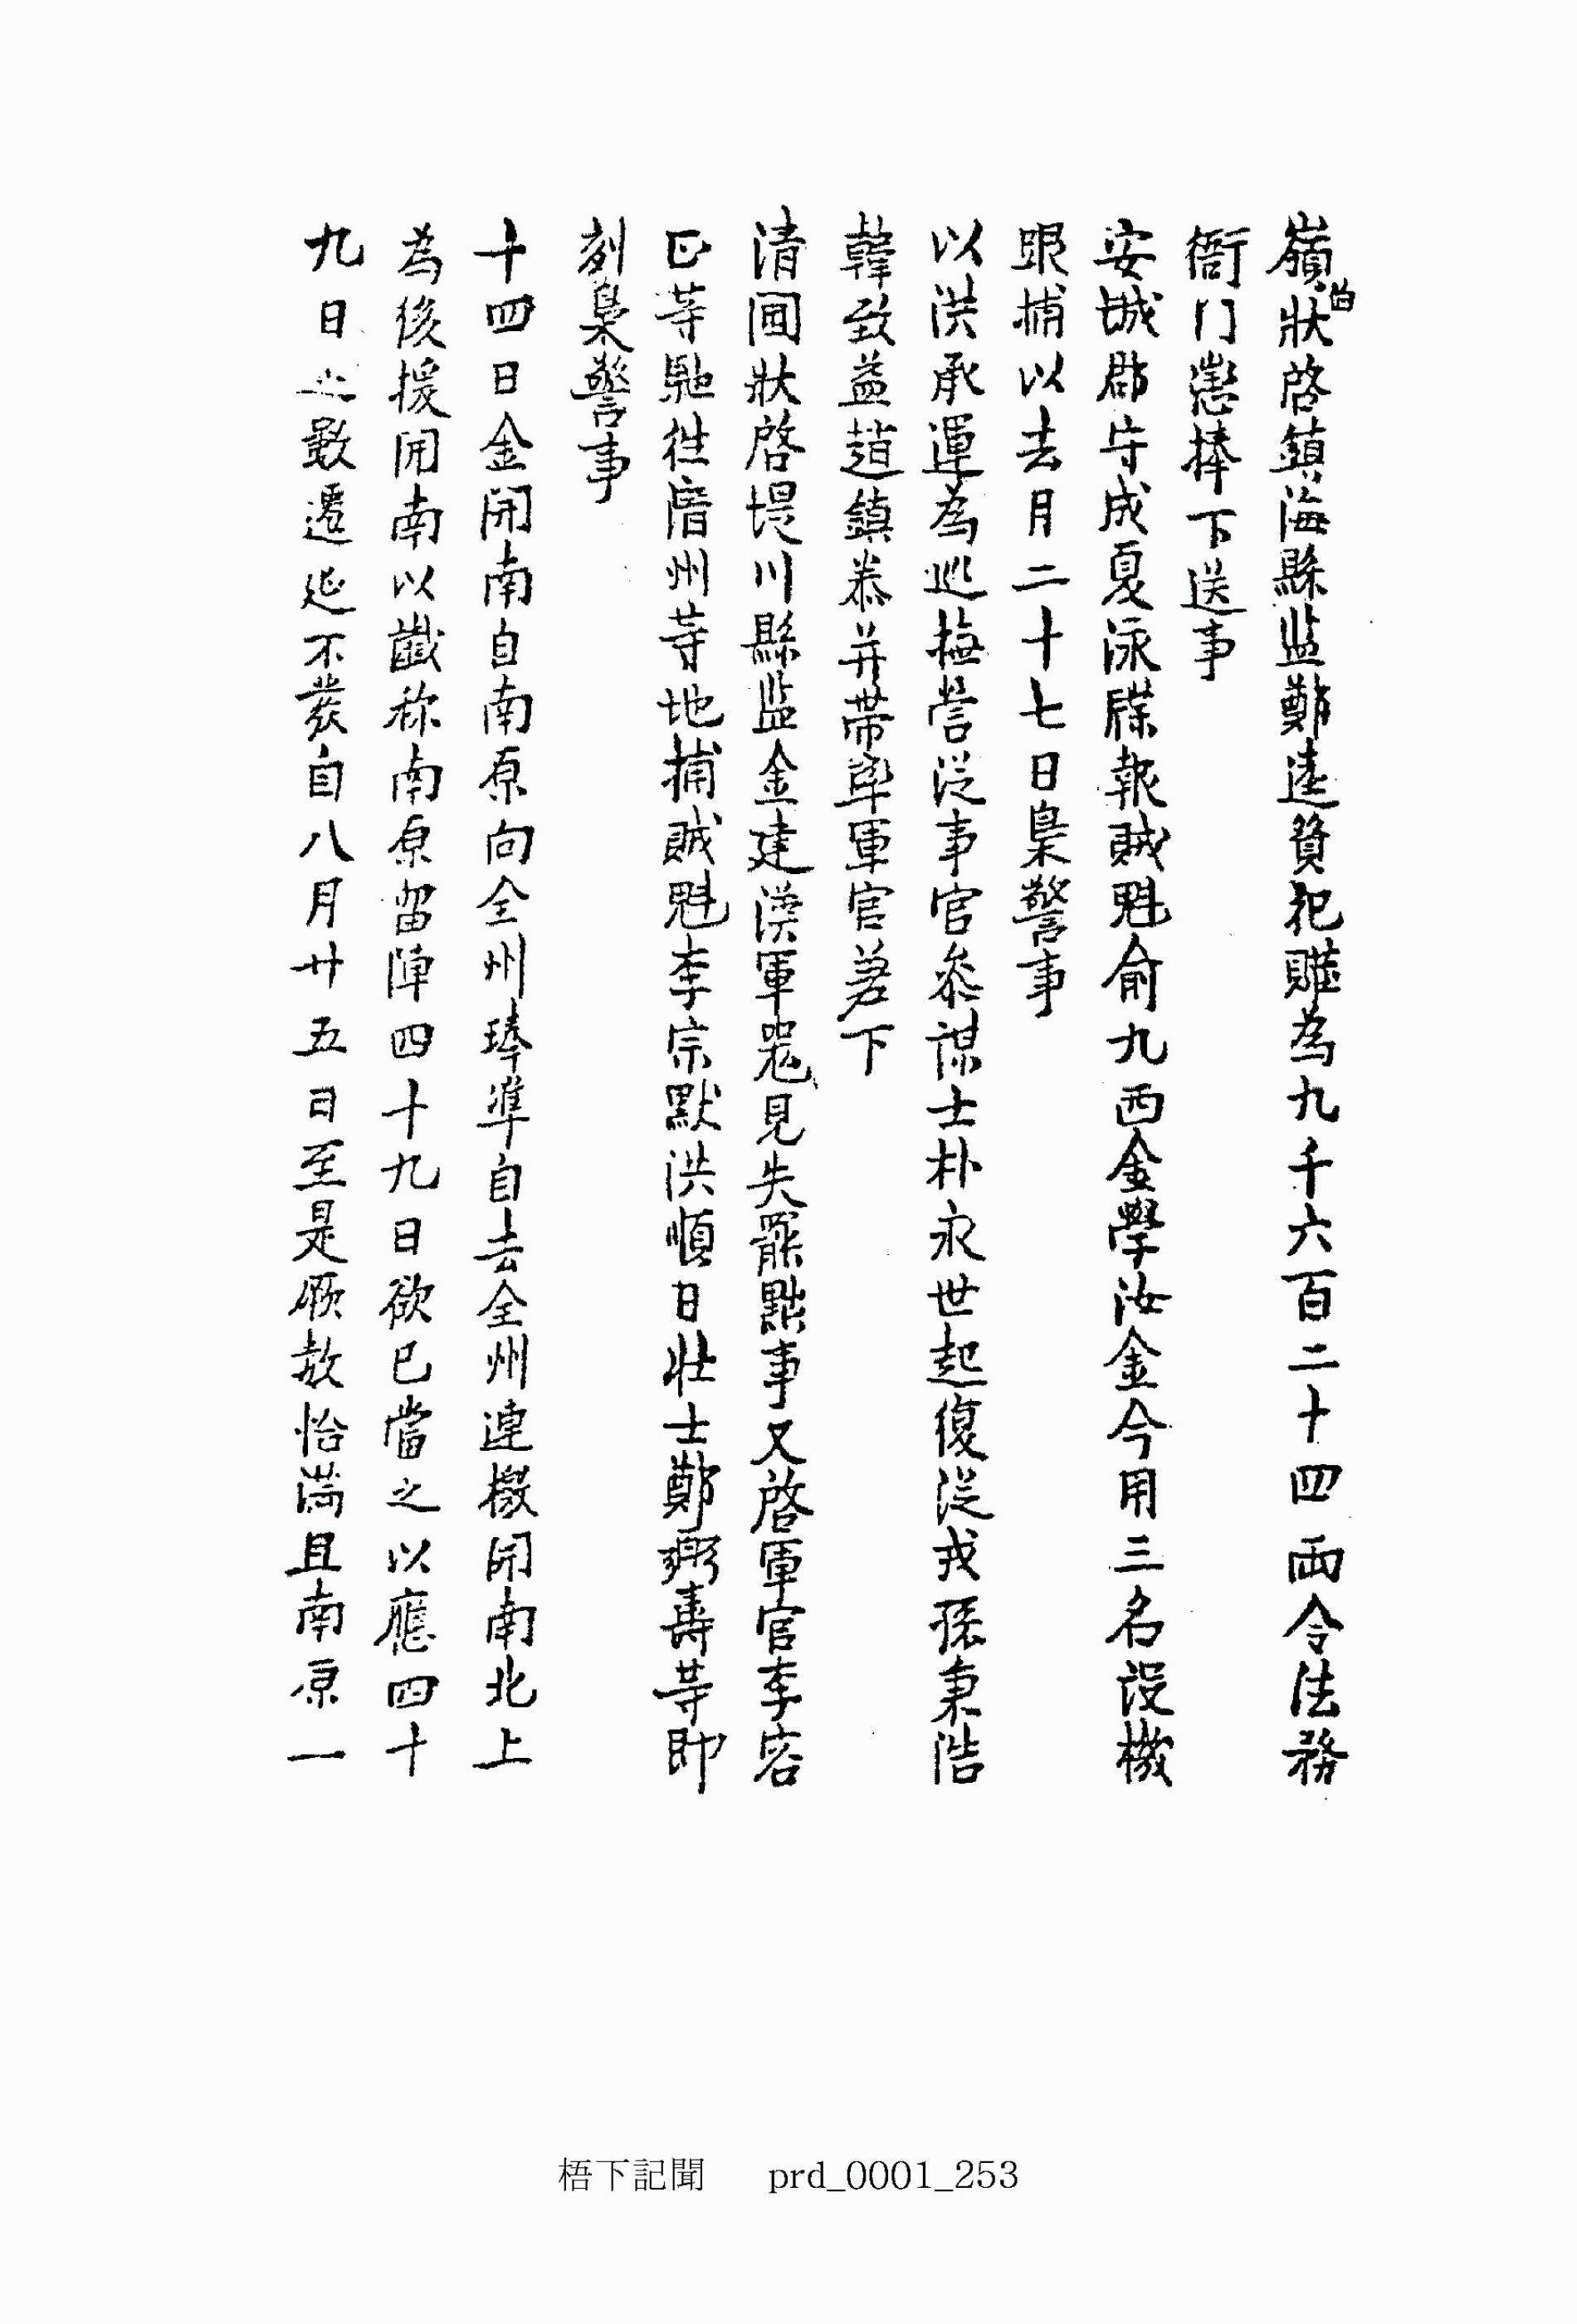 嶺伯狀啓鎭海縣監鄭逵贊犯贓為九千六百二十四兩令法務
衙门懲捧下送事
安城郡守成夏泳牒報賊魁俞九西金學汝金今用三名設機
跟捕以去月二十七日梟警事
以洪承運為巡撫營從事官參謀士朴永世起復從戎孫秉浩
韓致益趙鎭泰并帶率軍官差下
清固狀啓堤川縣監金建漢軍器見失罷黜事又啓軍官李容
正等馳往唐州等地捕賊魁李宗默洪順日壯士鄭弼壽等即
刻梟警事
十四日金開南自南原向全州琫準自去全州連檄開南北上
為後援開南以讖称南原留陣四十九日欲已當之以應四十
九日之數遷延不發自八月廿五日至是厥赦恰滿且南原一
梧下記聞 prd_0001_253